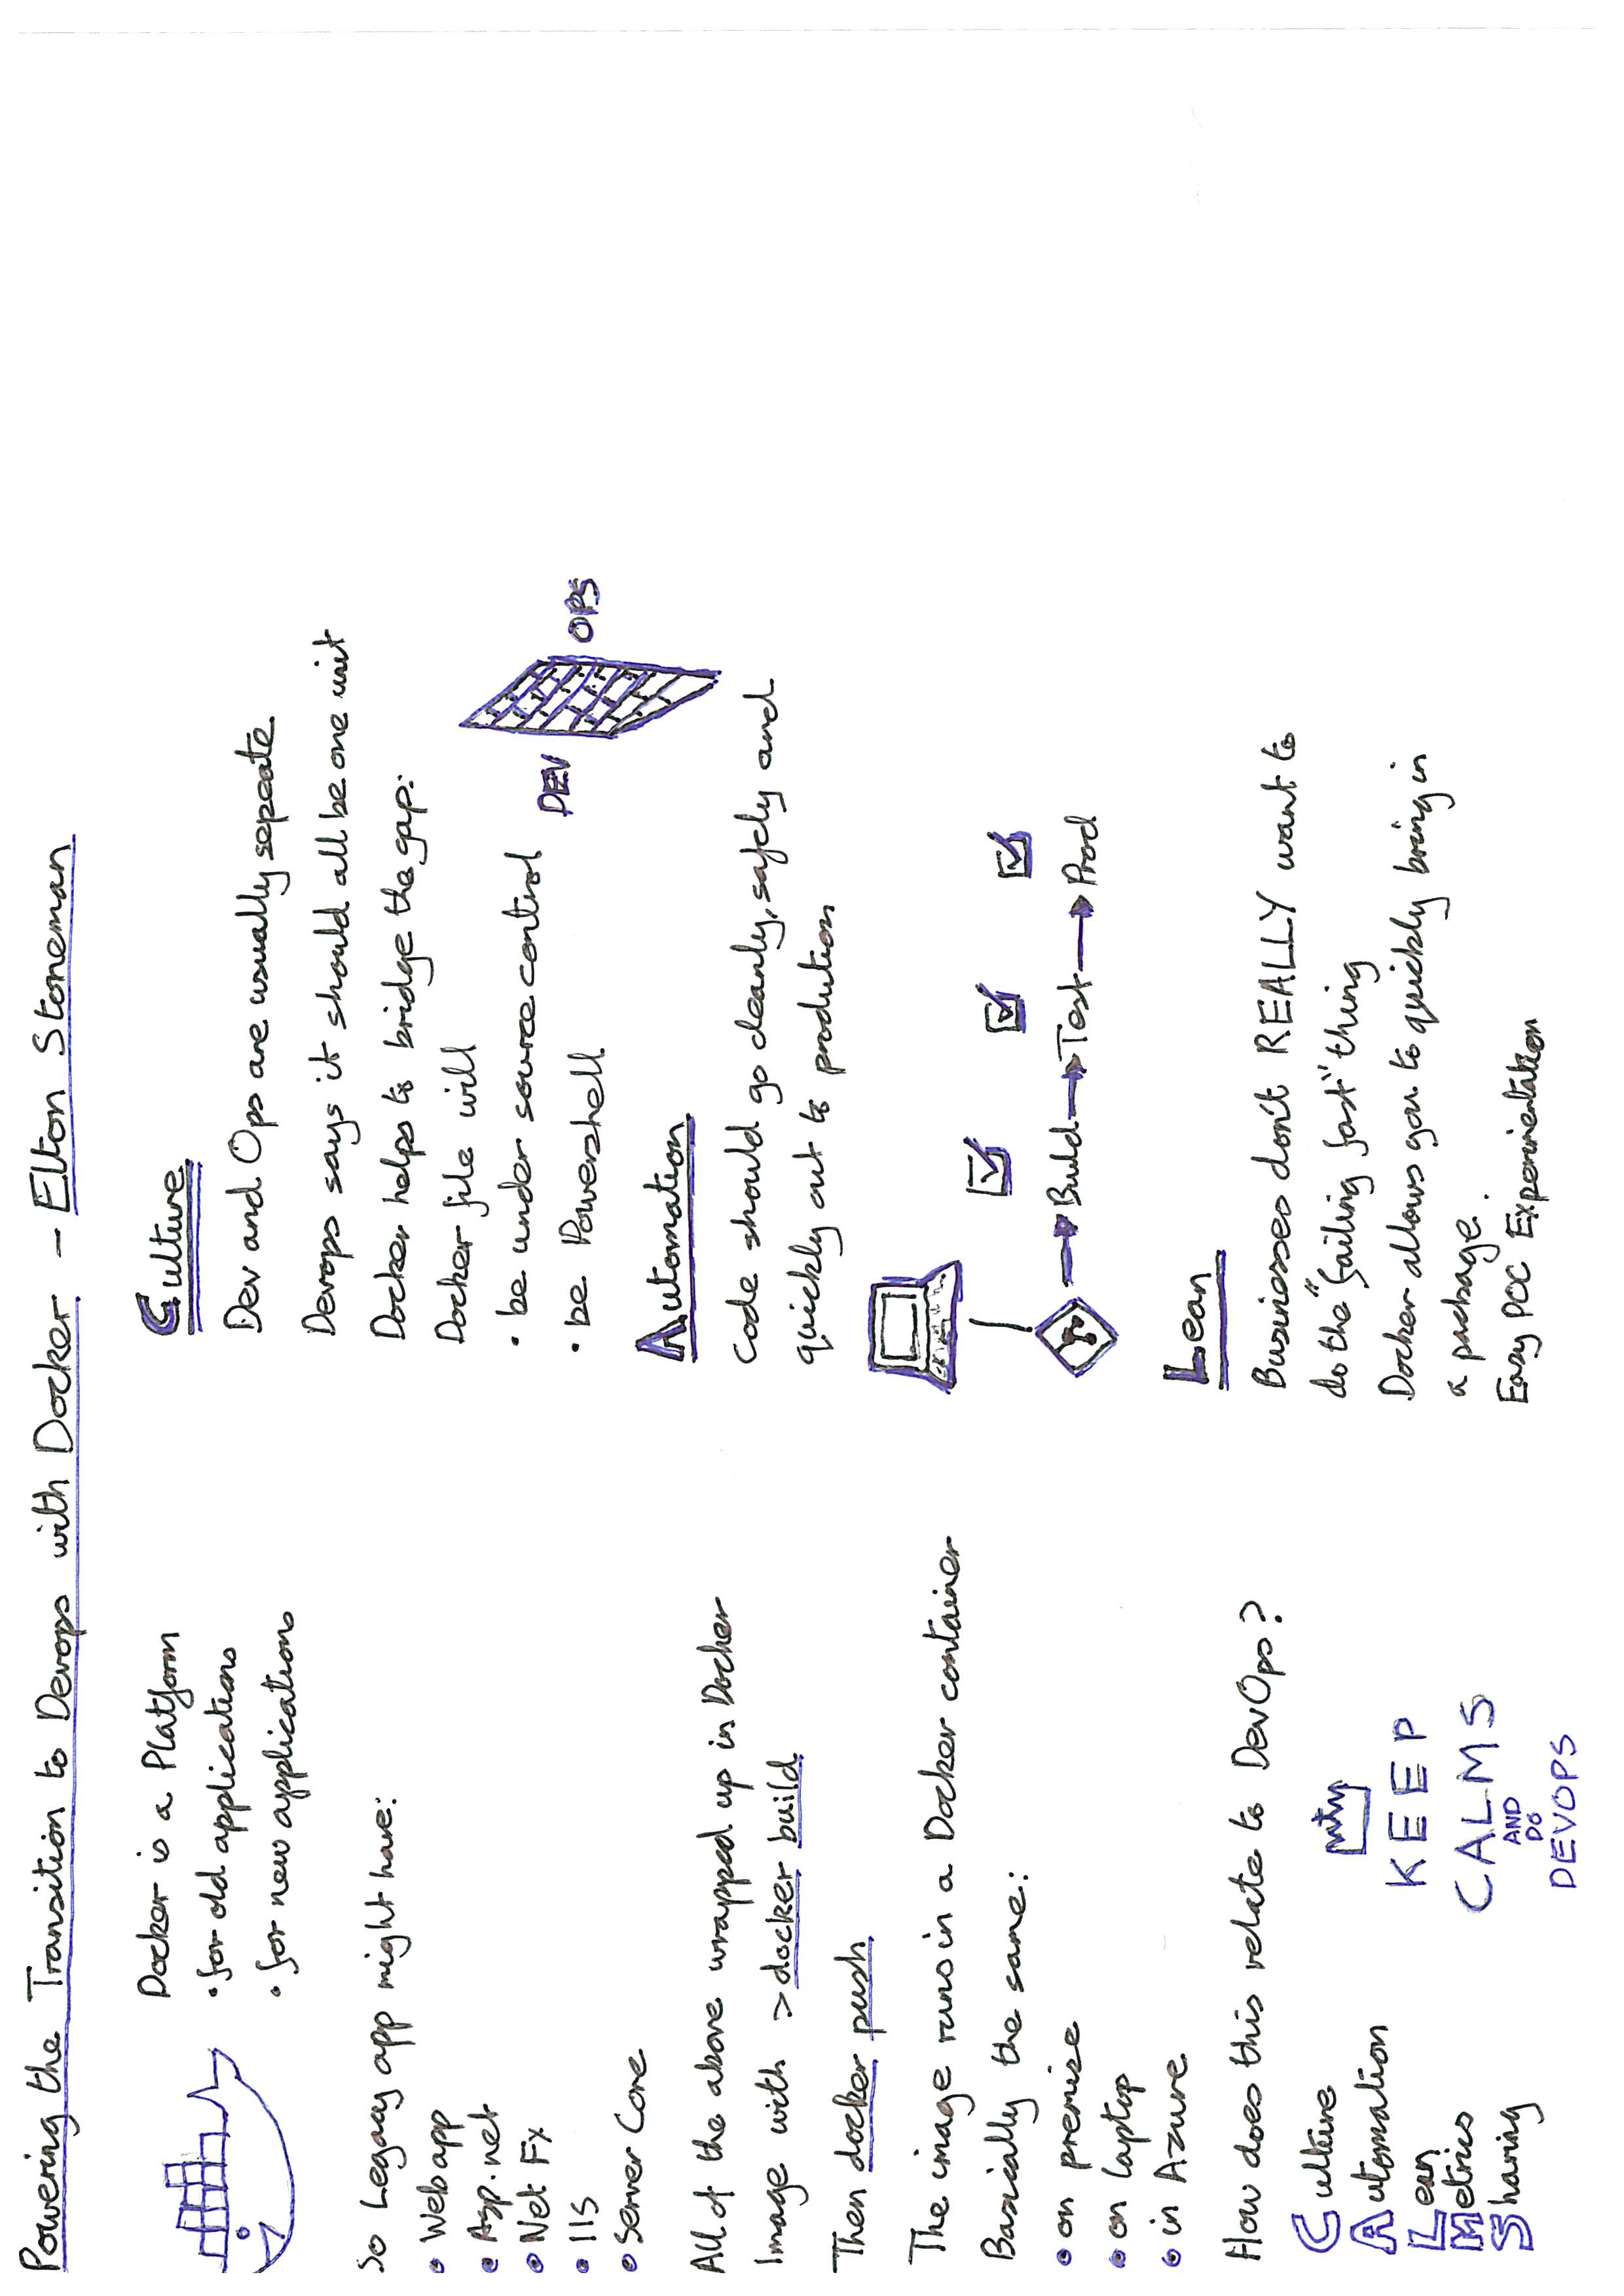 Powering the Transition to Devops with Docker - Elton Stoneman
Docker is a Platform
• for old applications
• for new applications
So Legacy app might have:
• Web app
• Asp.net
• Net Fx
• IIS
• Server Core
All of the above wrapped up in Docker
Image with >docker build
Then docker push
The image runs in a Docker container
Basically the same:
• on premise
• on laptop
• in Azure
How does this relate to DevOps?
Culture
Automation
Lean
Metrics
Sharing
KEEP
CALMS
AND
DO
DEVOPS
Culture
Dev and Ops are usually sepeate
Devops says it should all be one unit
Docker helps to bridge the gap:
Docker file will
• be under source control
• be Powershell
DEV
OPS
Automation
Code should go cleanly, safely and
quickly out to prodution
Build
Test
Prod
Lean
Businesses don't REALLY want to
do the "failing fast" thing
Docker allows you to quickly bring in
a package.
Easy POC Experimentation